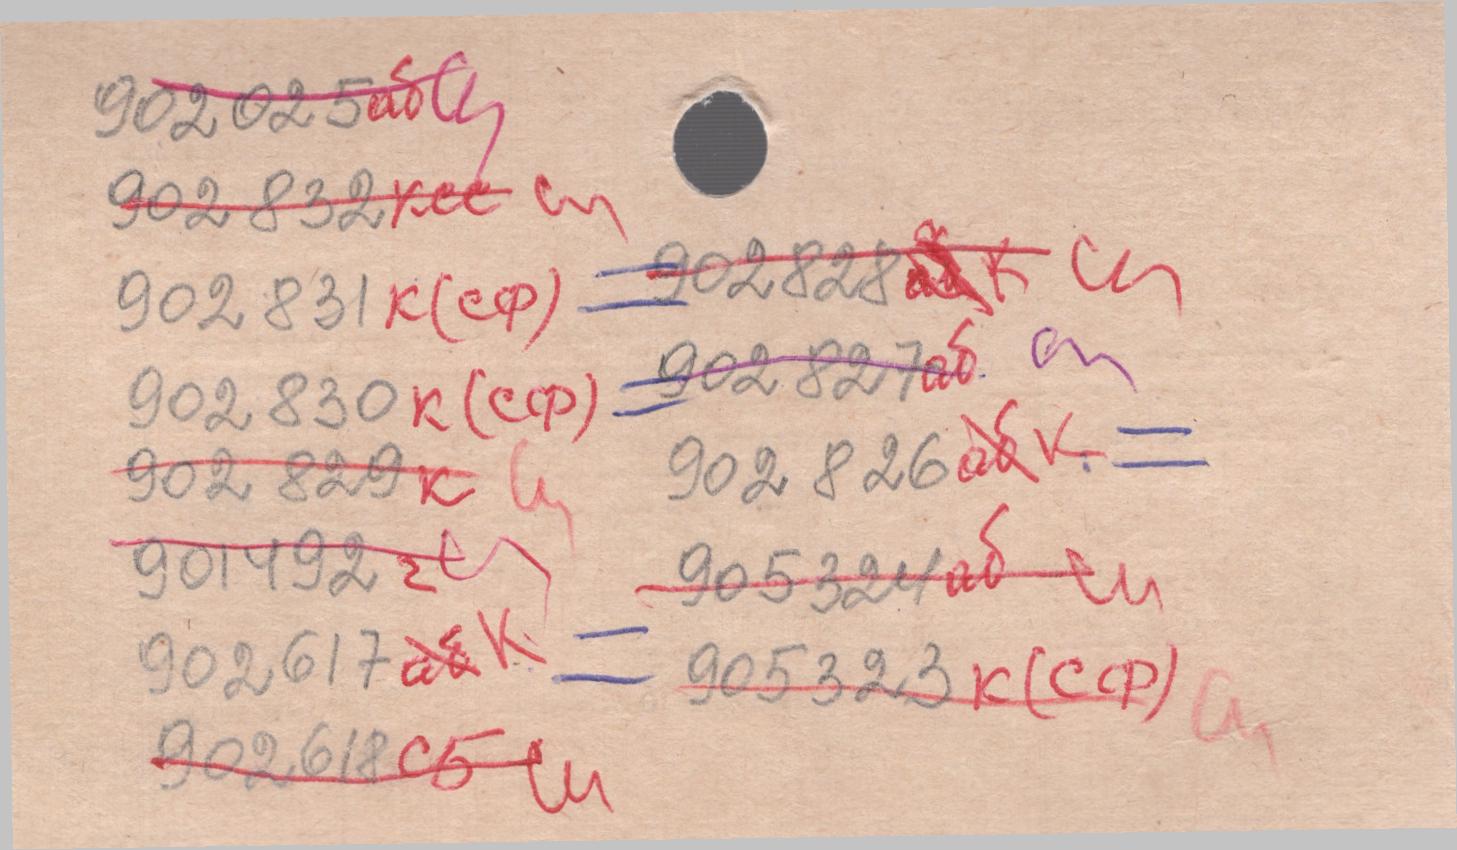 902025аб Сп
902832ксс Сп
902831 к(сф)
902830 к(сф)
902829 к Сп
901492 г Сп
902617 аб К.
902618 сб Сп
902828 аб К Сп
902827 аб. Сп
902826 аб К.
905324 аб Сп
905323 к(сф) Сп